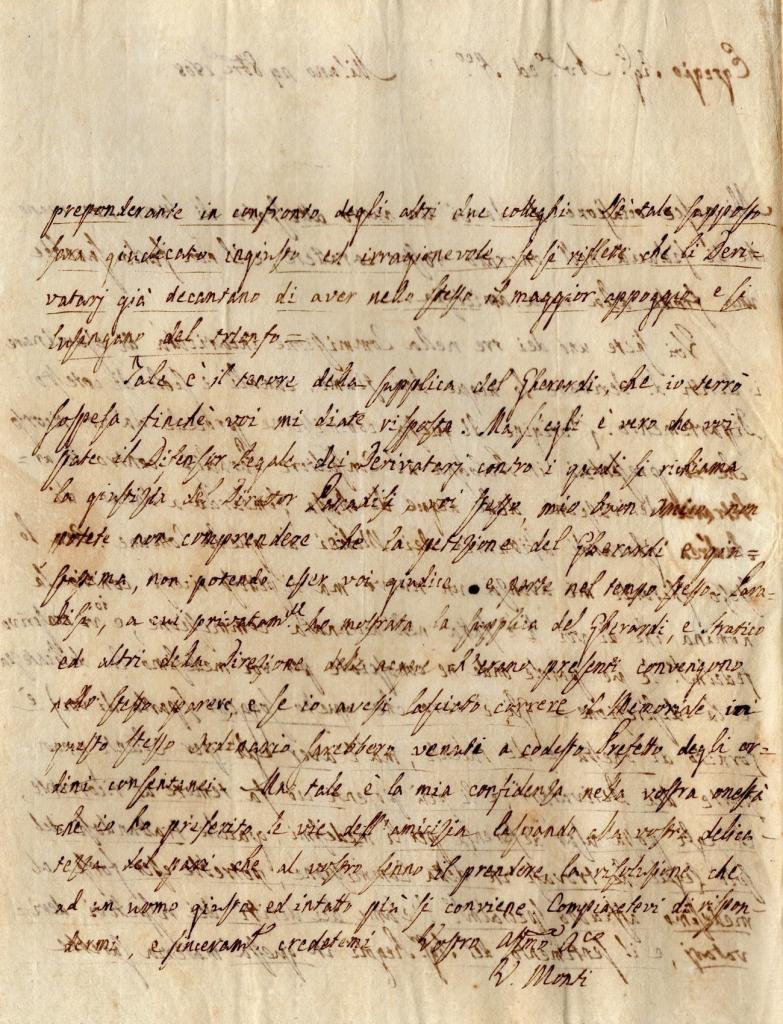 preponderante in confronto degli altri due colleghi. Nè tale supposto
sarà giudicato ingiusto ed irragionevole, se si riflette che li Deri-
vatarj già decantano di aver nello stesso il maggior appoggio e si
lusingano del trionfo =
Tale è il tenore della supplica del Gherardi, che io terrò
sospesa finchè voi mi diate risposta. Ma s'egli è vero che voi
siate il Difensor Legale dei Derivatarj contro i quali si richiama
la giustizia del Director Paradisi, voi stesso mio buon amico non
potete non comprendere che la petizione del Gherardi è gius-
tissima, non potendo esser voi giudice e parte nel tempo stesso. Para-
disi, a cui privatam.te ho mostrata la supplica del Gherardi, e Stratico
ed altri della Direzione delle acque ch'erano presenti convengono
nello stesso parere, e se io avessi lasciato correre il Memoriale in
questo stesso Ordinario sarebbero venuti a codesto Prefetto degli or-
dini consentanei. Ma tale è la mia confidenza nella vostra onestà
che io ho preferito le vie dell'amicizia lasciando alla vostra delica-
tezza del pari che al vostro senno il prendere la risoluzione che
ad un uomo giusto ed intatto più si conviene. Compiacetevi di rispon-
dermi, e sinceram.te credetemi Vostro Aff.mo A.co
V. Monti